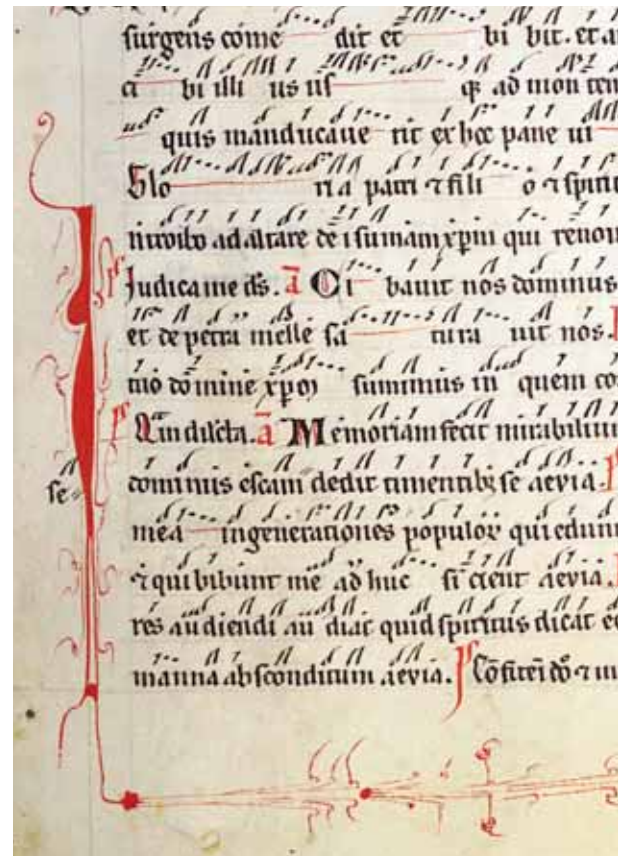 surgens come dit et bi bit. et a
ci bi illi us us qz ad mon tem
quis manducaue rit ex hoc pane ui
Glo ri a patri ⁊ fili o ⁊ spirit
introibo ad altare dei sumam xpm qui renou
Judica me ds. a Ci bauit nos dominus
et de petra melle sa tura uit nos.
tuo domine summus in quem co
a Memoriam fecit mirabilium
se dominus escam dedit timentibz se aevia. ps
mea in generationes populoꝝ qui edunt
⁊ qui bibunt me ad huc si cient aevia.
res audiendi au diat quid spiritus dicat ec
manna absconditum aevia. ps